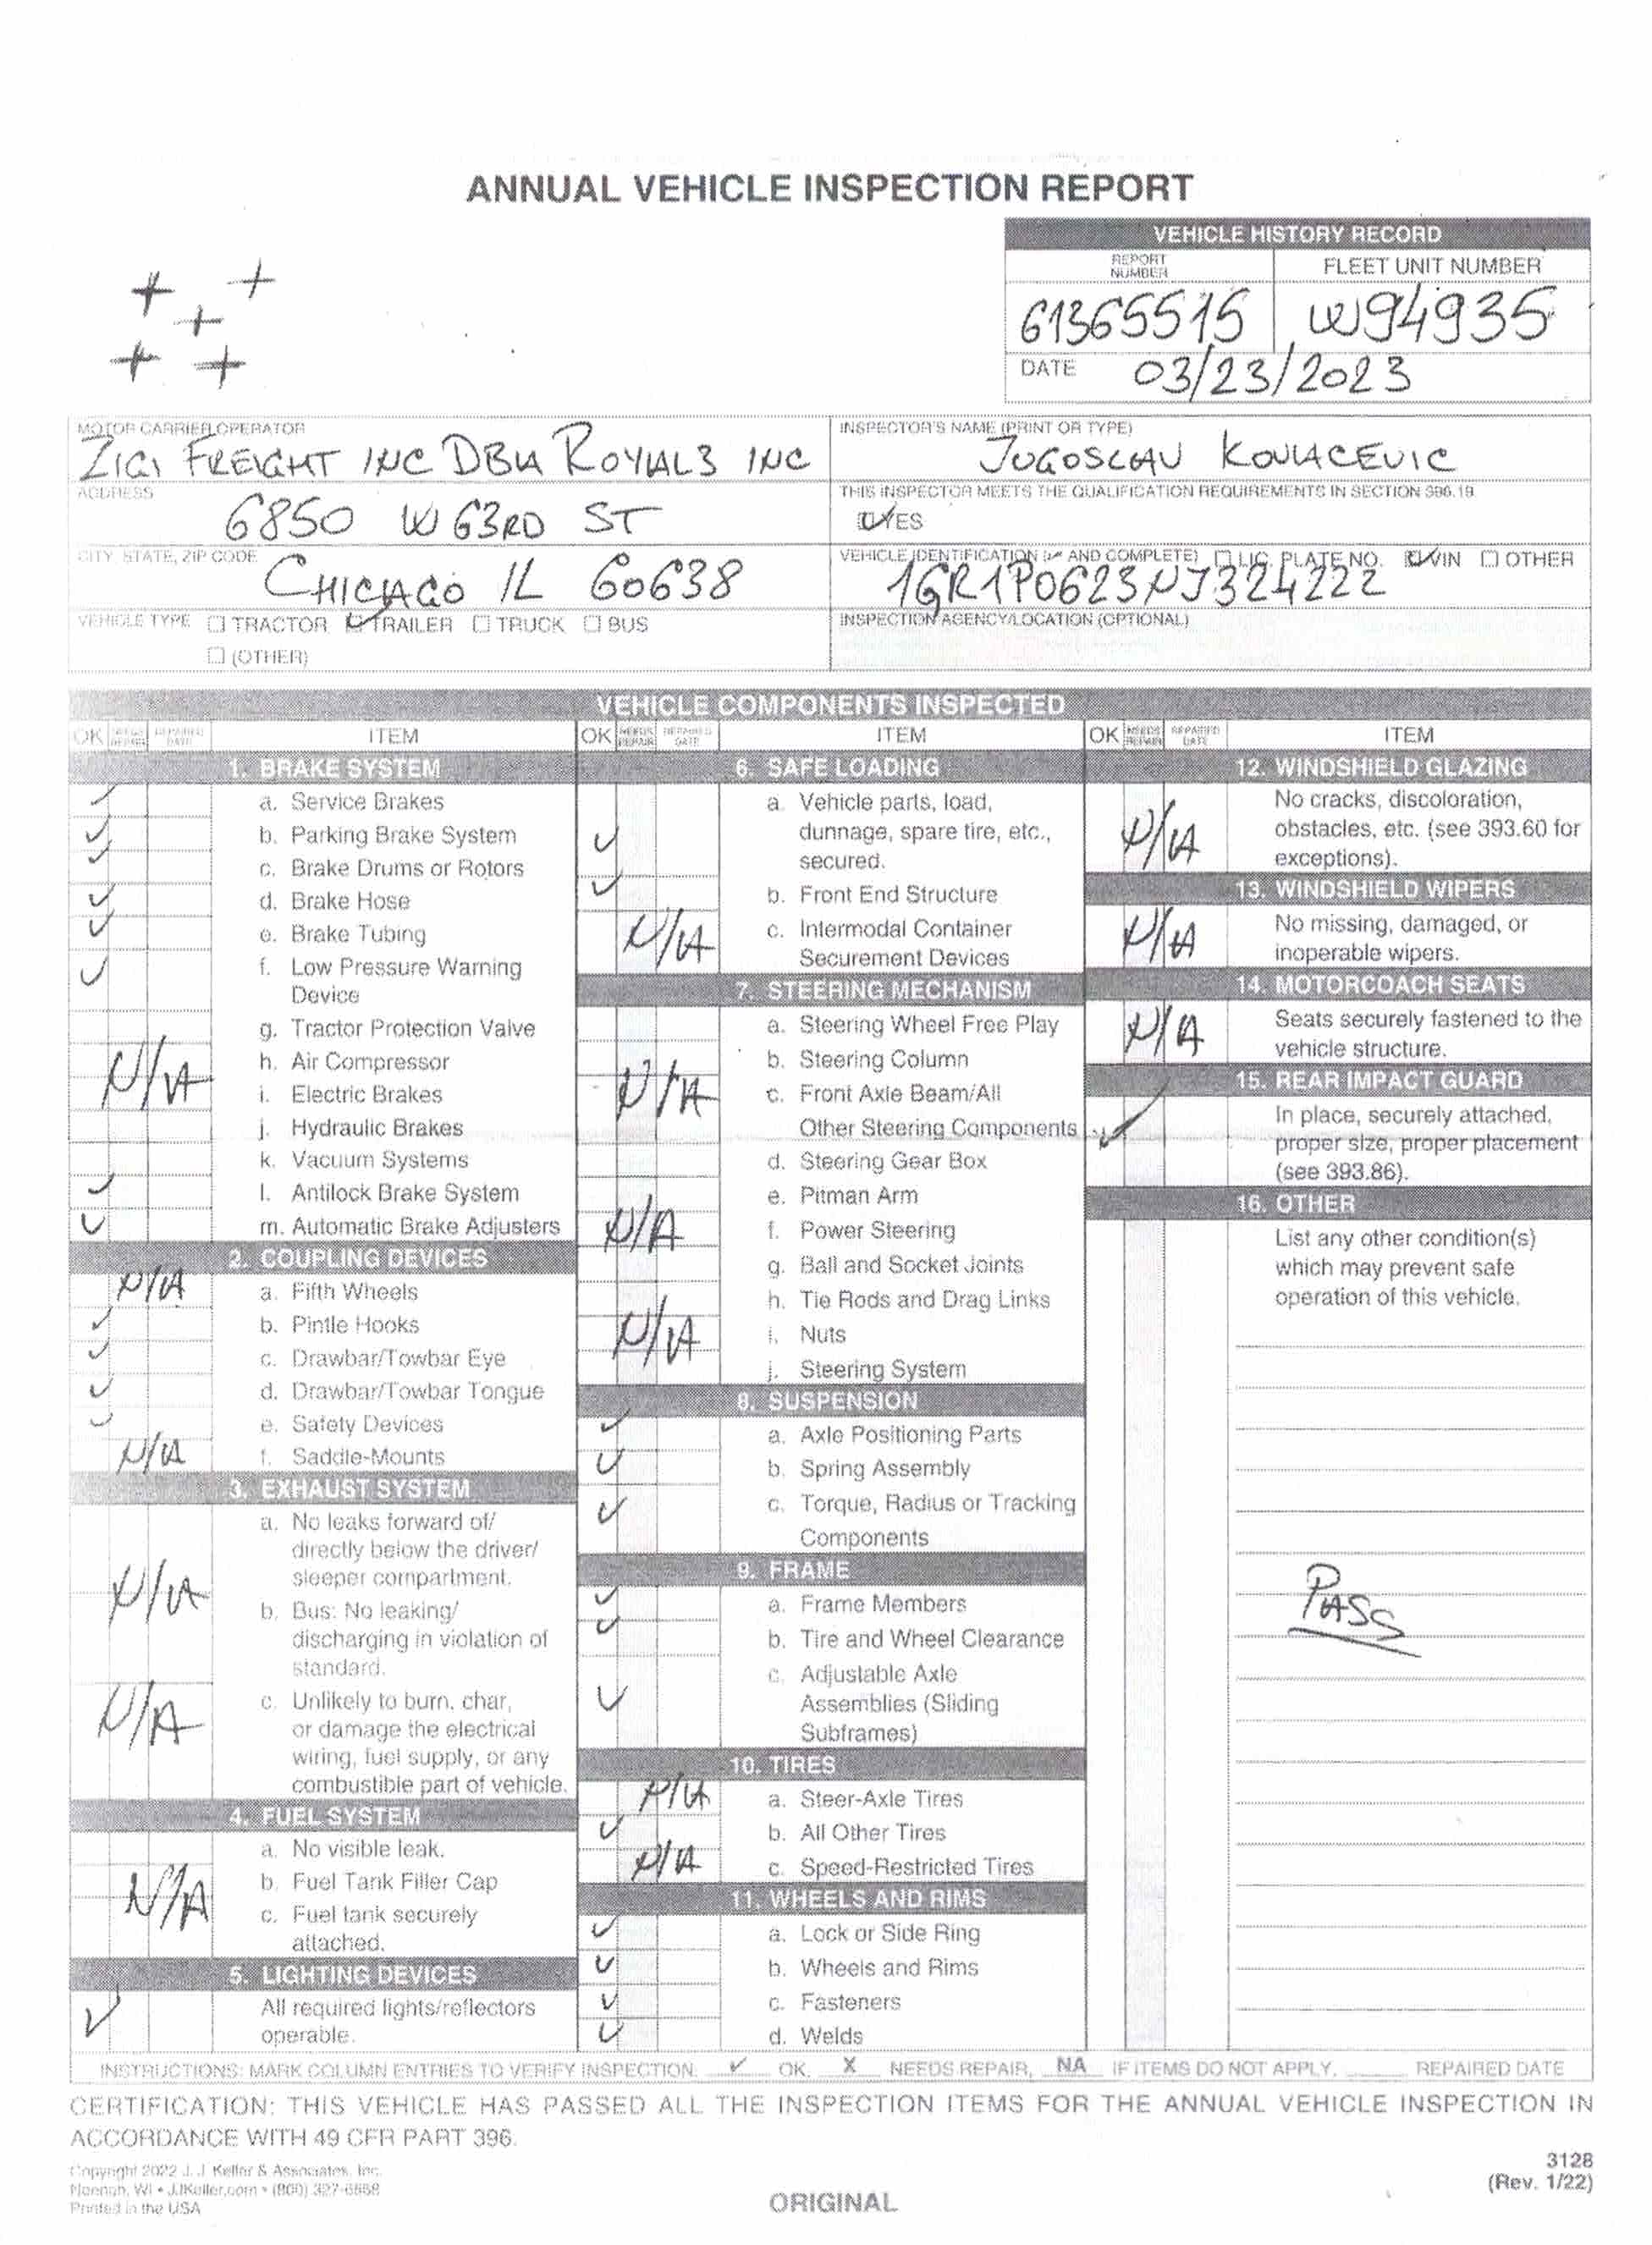 ANNUAL VEHICLE INSPECTION REPORT
VEHICLE HISTORY RECORD
REPORT NUMBER
FLEET UNIT NUMBER
61365515
W94935
DATE 03/23/2023
MOTOR CARRIER OPERATOR
ZIGI FREIGHT INC DBA ROYAL3 INC
INSPECTOR'S NAME (PRINT OR TYPE)
JUGOSLAV KOVACEVIC
ADDRESS
6850 W 63RD ST
THIS INSPECTOR MEETS THE QUALIFICATION REQUIREMENTS IN SECTION 396.19
YES
CITY, STATE, ZIP CODE
CHICAGO IL 60638
VEHICLE IDENTIFICATION (✓ AND COMPLETE) ☐ LIC. PLATE NO. ☑ VIN ☐ OTHER
1GR1P0623NJ324222
VEHICLE TYPE ☐ TRACTOR ☑ TRAILER ☐ TRUCK ☐ BUS
☐ (OTHER)
INSPECTION AGENCY/LOCATION (OPTIONAL)
VEHICLE COMPONENTS INSPECTED
OK NEEDS REPAIR REPAIRED DATE ITEM
1. BRAKE SYSTEM
✓ a. Service Brakes
✓ b. Parking Brake System
✓ c. Brake Drums or Rotors
✓ d. Brake Hose
✓ e. Brake Tubing
✓ f. Low Pressure Warning
Device
g. Tractor Protection Valve
N/A h. Air Compressor
i. Electric Brakes
j. Hydraulic Brakes
k. Vacuum Systems
✓ l. Antilock Brake System
✓ m. Automatic Brake Adjusters
2. COUPLING DEVICES
N/A a. Fifth Wheels
✓ b. Pintle Hooks
✓ c. Drawbar/Towbar Eye
✓ d. Drawbar/Towbar Tongue
✓ e. Safety Devices
N/A f. Saddle-Mounts
3. EXHAUST SYSTEM
a. No leaks forward of/
directly below the driver/
sleeper compartment.
N/A
b. Bus: No leaking/
discharging in violation of
standard.
N/A c. Unlikely to burn, char,
or damage the electrical
wiring, fuel supply, or any
combustible part of vehicle.
4. FUEL SYSTEM
a. No visible leak.
N/A b. Fuel Tank Filler Cap
c. Fuel tank securely
attached.
5. LIGHTING DEVICES
✓ All required lights/reflectors
operable.
OK NEEDS REPAIR REPAIRED DATE ITEM
6. SAFE LOADING
a. Vehicle parts, load,
✓ dunnage, spare tire, etc.,
secured.
✓ b. Front End Structure
N/A c. Intermodal Container
Securement Devices
7. STEERING MECHANISM
a. Steering Wheel Free Play
b. Steering Column
N/A c. Front Axle Beam/All
Other Steering Components
d. Steering Gear Box
e. Pitman Arm
N/A f. Power Steering
g. Ball and Socket Joints
h. Tie Rods and Drag Links
N/A i. Nuts
j. Steering System
8. SUSPENSION
✓ a. Axle Positioning Parts
✓ b. Spring Assembly
✓ c. Torque, Radius or Tracking
Components
9. FRAME
✓ a. Frame Members
✓ b. Tire and Wheel Clearance
✓ c. Adjustable Axle
Assemblies (Sliding
Subframes)
10. TIRES
N/A a. Steer-Axle Tires
✓ b. All Other Tires
N/A c. Speed-Restricted Tires
11. WHEELS AND RIMS
✓ a. Lock or Side Ring
✓ b. Wheels and Rims
✓ c. Fasteners
✓ d. Welds
OK NEEDS REPAIR REPAIRED DATE ITEM
12. WINDSHIELD GLAZING
No cracks, discoloration,
N/A obstacles, etc. (see 393.60 for
exceptions).
13. WINDSHIELD WIPERS
N/A No missing, damaged, or
inoperable wipers.
14. MOTORCOACH SEATS
N/A Seats securely fastened to the
vehicle structure.
15. REAR IMPACT GUARD
✓ In place, securely attached,
proper size, proper placement
(see 393.86).
16. OTHER
List any other condition(s)
which may prevent safe
operation of this vehicle.
PASS
INSTRUCTIONS: MARK COLUMN ENTRIES TO VERIFY INSPECTION. ✓ OK, X NEEDS REPAIR, NA IF ITEMS DO NOT APPLY, ____ REPAIRED DATE
CERTIFICATION: THIS VEHICLE HAS PASSED ALL THE INSPECTION ITEMS FOR THE ANNUAL VEHICLE INSPECTION IN
ACCORDANCE WITH 49 CFR PART 396.
Copyright 2022 J. J. Keller & Associates, Inc.
Neenah, WI • JJKeller.com • (800) 327-6868
Printed in the USA
ORIGINAL
3128
(Rev. 1/22)